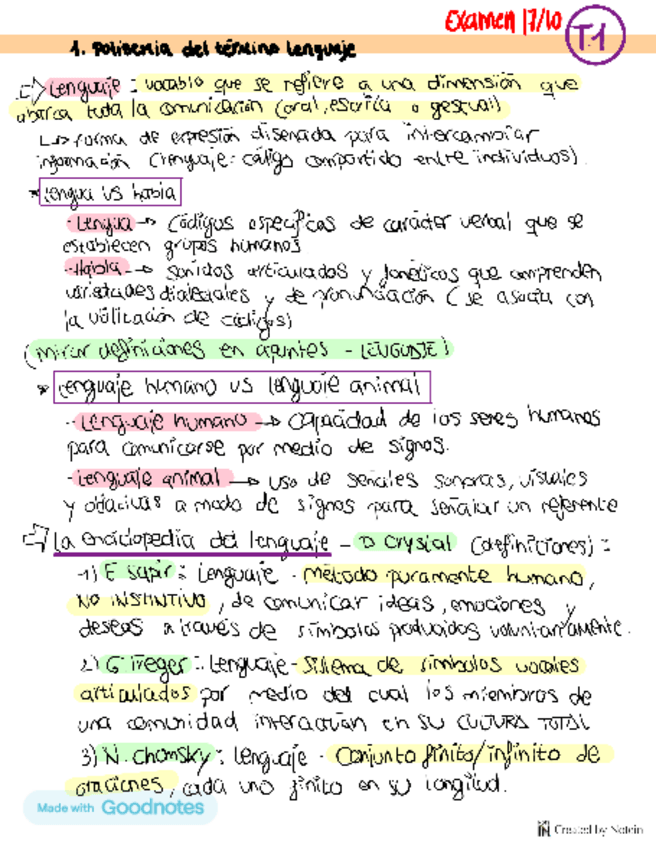 Examen 17/10
T.1
1. Polisemia del término lenguaje
Lenguaje: vocablo que se refiere a una dimensión que
abarca toda la comunicación (oral, escrita o gestual)
↳ forma de expresión diseñada para intercambiar
información (lenguaje: código compartido entre individuos).
* Lengua VS habla
· Lengua → Códigos específicos de carácter verbal que se
establecen grupos humanos
· Habla → sonidos articulados y fonéticos que comprenden
variedades dialectales y de pronunciación (se asocia con
la utilización de códigos)
(mirar definiciones en apuntes - LENGUAJE)
* Lenguaje humano vs lenguaje animal
· Lenguaje humano → capacidad de los seres humanos
para comunicarse por medio de signos.
· Lenguaje animal → uso de señales sonoras, visuales
y olfativas a modo de signos para señalar un referente
La enciclopedia del lenguaje - D Crystal (definiciones):
1) E Sapir: Lenguaje · método puramente humano,
NO INSTINTIVO, de comunicar ideas, emociones y
deseos a través de símbolos producidos voluntariamente.
2) G Treger: Lenguaje - Sistema de símbolos vocales
articulados por medio del cual los miembros de
una comunidad interactúan en su CULTURA TOTAL
3) N. Chomsky: Lenguaje · Conjunto finito/infinito de
oraciones, cada uno finito en su longitud.
Made with Goodnotes
Created by Notein